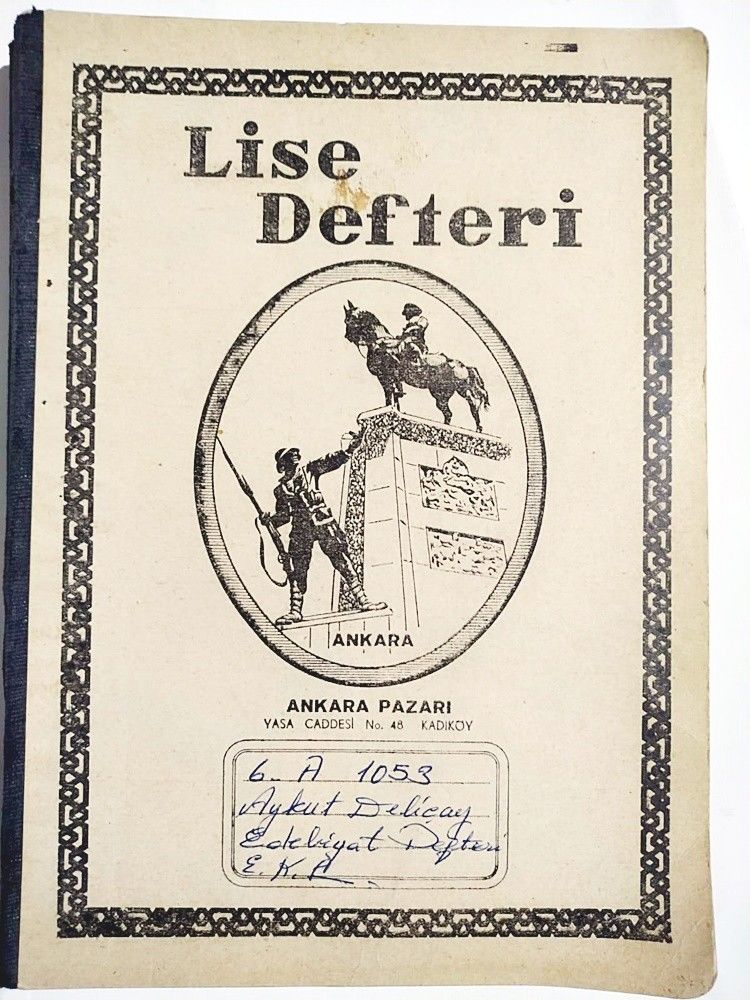 Lise
Defteri
ANKARA
ANKARA PAZARI
YASA CADDESİ No. 48 KADIKÖY
6- A 1053
Aykut Deliçay
Edebiyat Defteri
E.K.A